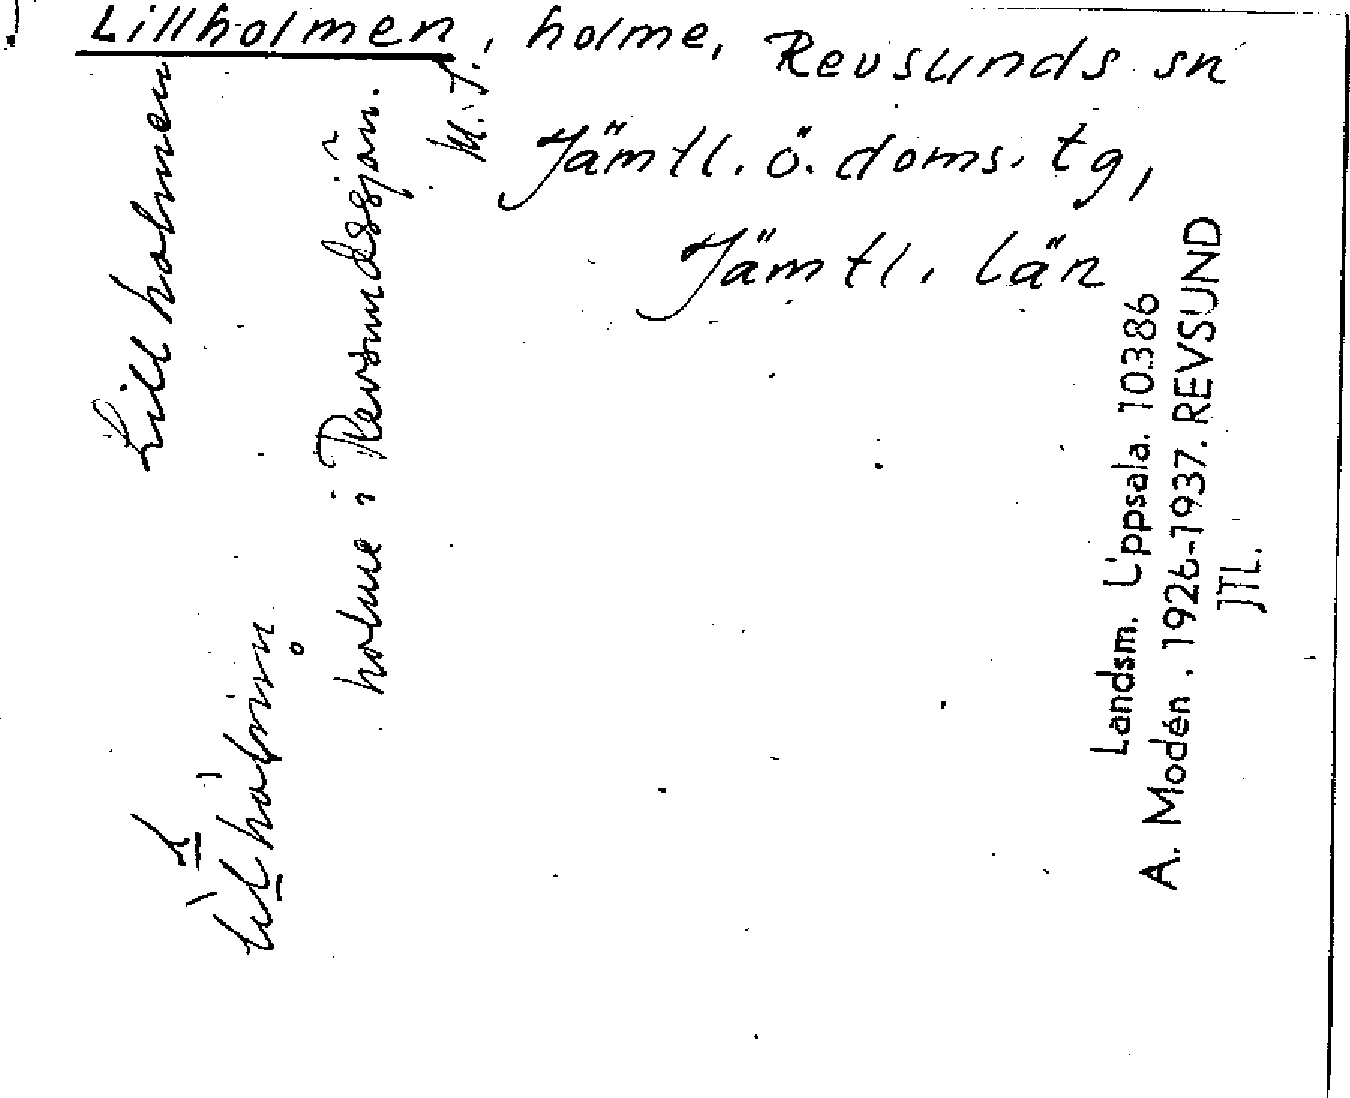 Lillholmen, holme, Revsunds sn
Jämtl. ö. doms. tg,
Jämtl. län
Lill holmen
holme i Revsundssjön.
M. J.
Landsm. Uppsala. 10386
A. Modén. 1926-1937. REVSUND
JTL.